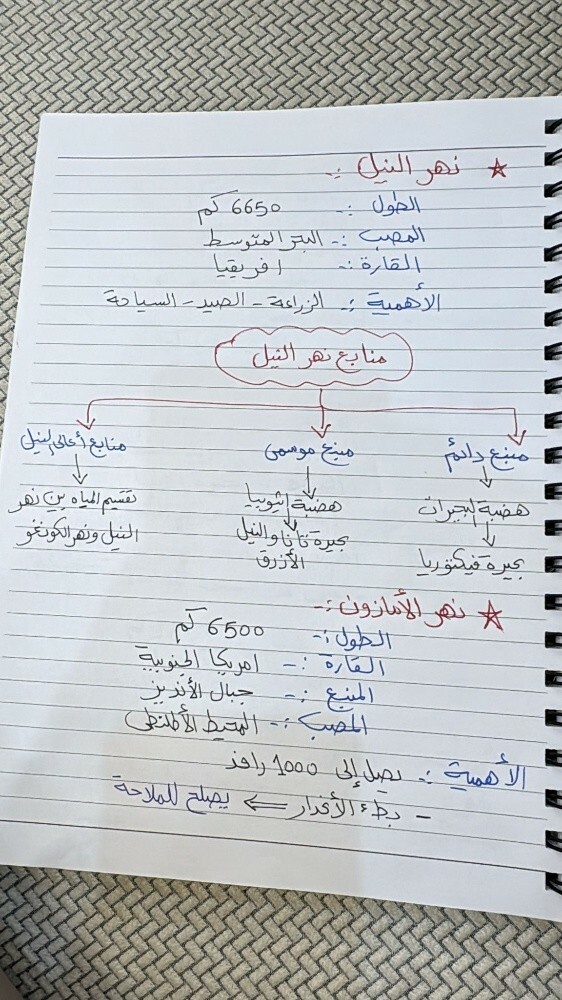 نهر النيل :-
الطول :- 6650 كم
المصب :- البحر المتوسط
القارة :- افريقيا
الأهمية :- الزراعة - الصيد - السياحة
منابع نهر النيل
منبع دائم
منبع موسمى
منابع أعالى النيل
هضبة البحيرات
هضبة اثيوبيا
تقسيم المياه بين نهر
بحيرة فيكتوريا
بحيرة تانا والنيل
النيل ونهر الكونغو
الأزرق
نهر الأمازون :-
الطول :- 6500 كم
القارة :- امريكا الجنوبية
المنبع :- جبال الأنديز
المصب :- المحيط الأطلنطى
الأهمية :- يصل إلى 1000 رافد
- بطء الأغدار ⇐ يصلح للملاحة